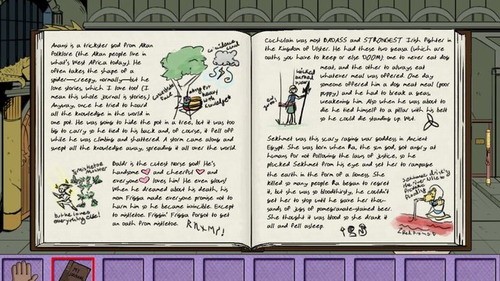 Anansi is a trickster god from Akan
folklore (the Akan people live in
what's West Africa today). He
often takes the shape of a
spider—creepy, normally—but he
love stories, which I love too! (I
mean this whole journal is stories.)
Anyway, once he tried to hoard
all the knowledge in the world in
one pot. He was going to hide the pot in a tree, but it was too
big to carry so he tied it to his back and, of course, it fell off
while he was climbing and shattered. A storm came along and
swept all the knowledge away, spreading it all over the world.
Baldr is the cutest norse god! He's
handsome and cheerful and
everyone loves him! He even glows!
When he dreamed about his death, his
mom Frigga made everyone promise not to
harm him so he became invincible. Except
to mistletoe. Friggin' Frigga forgot to get
an oath from mistletoe.
mistletoe murder
but he looks
everything else!
Cuchulain was most BADASS and STRONGEST Irish fighter in
the Kingdom of Ulster. He had these two geasa (which are
oaths you have to keep or else DOOM), one to never eat dog
meat, and the other to always eat
whatever meat was offered. One day
someone offered him a dog meat meal (poor
puppy) and he had to break a geas,
weakening him. Also when he was about to
die he tied himself to a pillar with his belt
so he could die standing up. Wut.
Sekhmet was this scary raging war goddess in Ancient
Egypt. She was born when Ra, the sun god, got angry at
humans for not following the laws of justice, so he
plucked Sekhmet from his eye and set her to rampage
the earth in the form of a lioness. She
killed so many people Ra began to regret
it, but she was so bloodthirsty, he couldn't
get her to stop until he gave her thou-
sands of jugs of pomegranate-stained beer.
She thought it was blood so she drank it
all and fell asleep.
Sekhmet